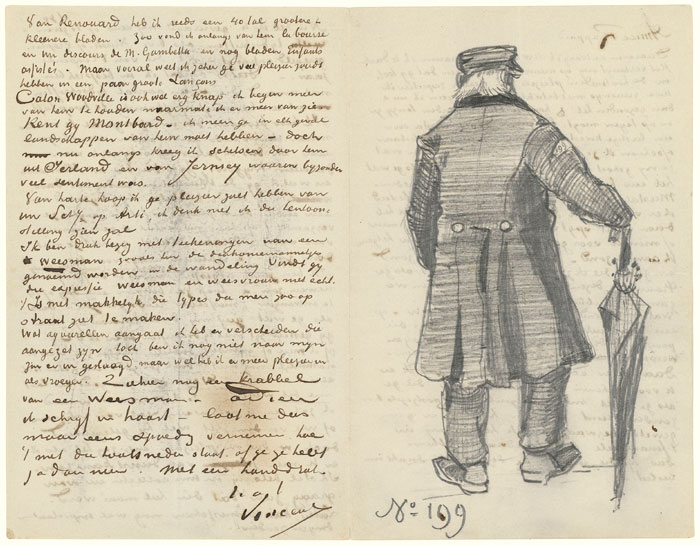 Van Renouard heb ik reeds een 40 tal grootere &
kleinere bladen. Zoo vond ik onlangs van hem la bourse
en un discours de M. Gambetta en nog bladen Enfants
assistés. Maar vooral weet ik zeker ge veel plezier zoudt
hebben in een paar groote Lançons
Caton Woodville is ook wel erg knap ik begin meer
van hem te houden naarmate ik er meer van zie.
Kent gy Montbard. ik meen ge in elk geval
landschappen van hem moet hebben – doch
nu onlangs kreeg ik schetsen door hem
uit Ierland en van Jersey waarin byzonder
veel sentiment was.
Van harte hoop ik ge plezier zult hebben van
uw op Arti, ik denk met ik die tentoon
stelling zien zal
Ik ben druk bezig met teekeningen van een
weesman zooals hier de diakoniemannetjes
genoemd worden in de wandeling. Vindt gy
die expressie weesman en weesvrouw niet echt.
't Is niet makkelyk die types die men zoo op
straat ziet te maken.
Wat aquarellen aangaat ik heb er verscheiden die
aangezet zyn toch ben ik nog niet naar myn
zin er in geslaagd maar wel heb ik er meer plezier in
als vroeger. Ziehier nog een krabbel
van een weesman. adieu
ik schryf in haast – laat me dus
maar eens spoedig vernemen hoe
't met die houtsneden staat of ge ze hebt
ja dan neen Met een handdruk.
t. à t.
Vincent
No 199